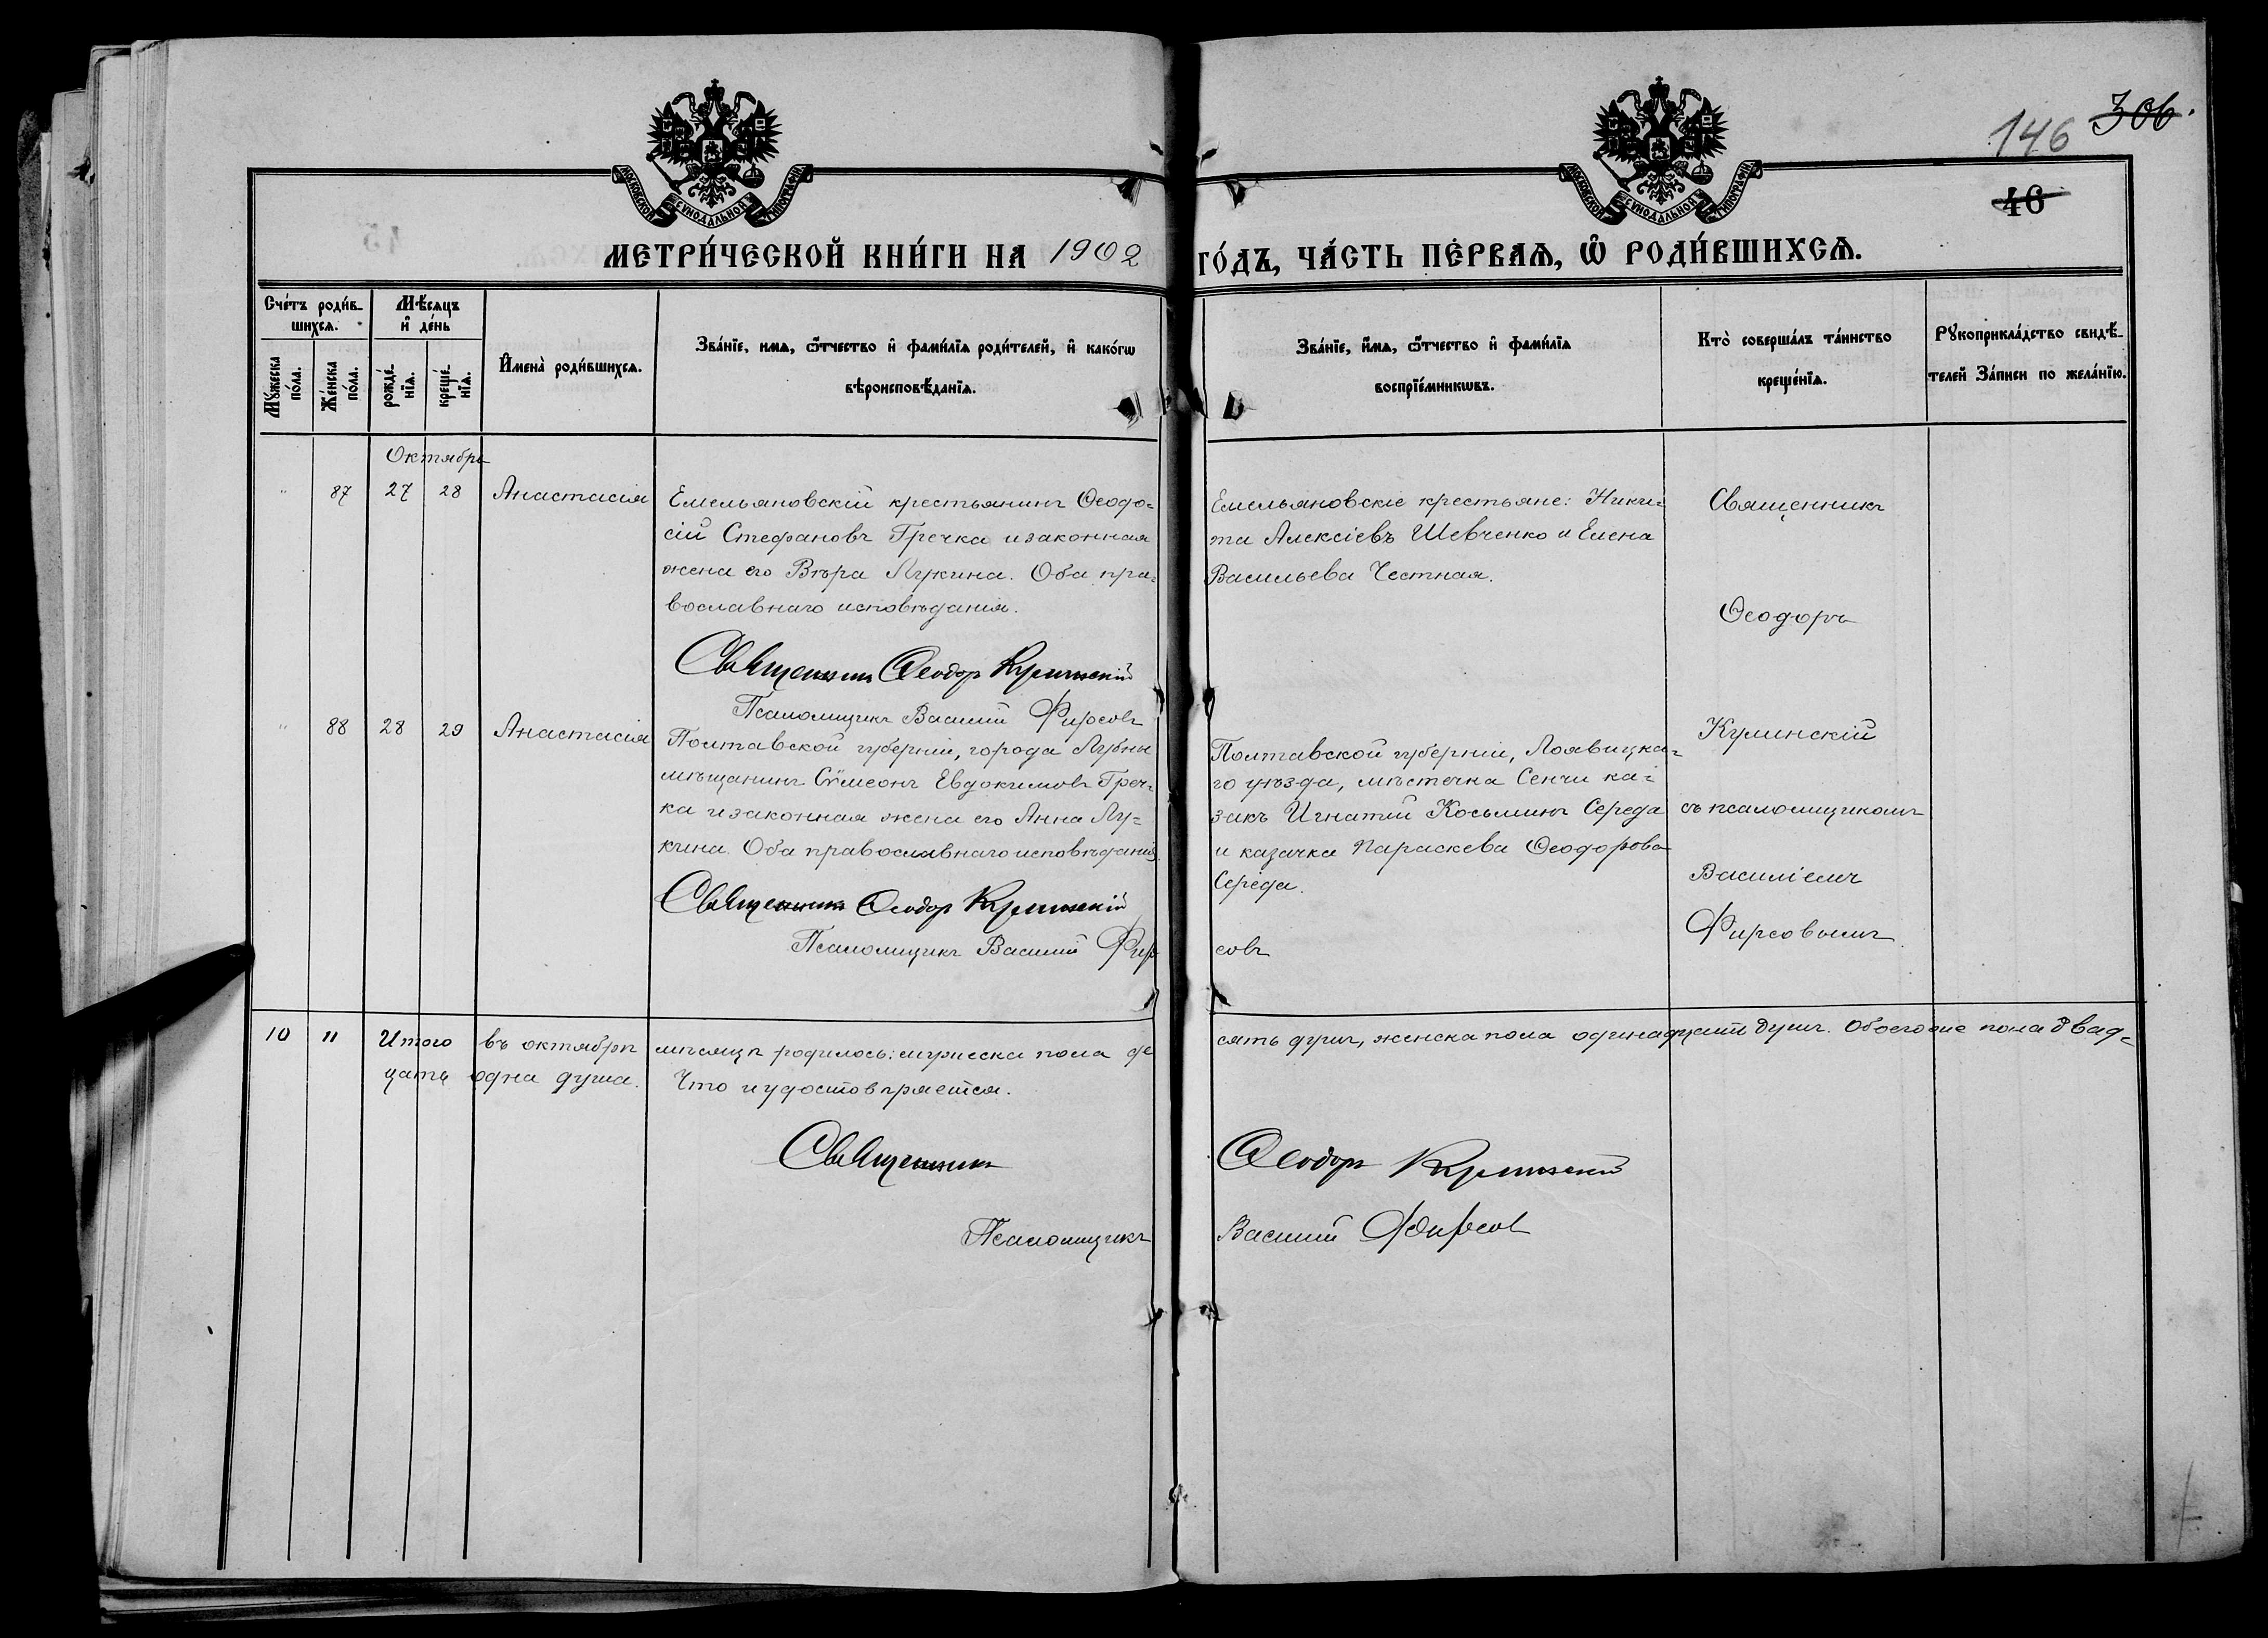 146 306.
МОСКОВСКОЙ СУНОДАЛЬНОЙ ТИПОГРАФІИ
МОСКОВСКОЙ СУНОДАЛЬНОЙ ТИПОГРАФІИ
46
МЕТРИ́ЧЕСКОЙ КНИ́ГИ НА 1902 ГО́ДЪ, ЧА́СТЬ ПЕ́РВАѦ, Ѡ҆ РОДИ́ВШИХСѦ.
Сче́тъ роди́в-
шихсѧ.
Мѣ́сѧцъ
и҆ де́нь
Мꙋ́жеска
по́ла.
Же́нска
по́ла.
рожде́-
нїѧ.
креще́-
нїѧ.
И҆мена̀ роди́вшихсѧ.
Зва́нїе, имѧ, ѻ҆́тчество и҆ фами́лїѧ роди́телей, и҆ како́гѡ
вѣроисповѣ́данїѧ.
Зва́нїе, и҆́мѧ, ѻ҆́тчество и҆ фами́лїѧ
воспрїе́мникѡвъ.
Кто̀ соверша́лъ та́инство
креще́нїѧ.
Рꙋкоприкла́дство свидѣ́-
телей За́писи по жела́нїю.
Октябрь
" 87 27 28 Анастасія
Емельяновскій крестьянинъ Ѳеодо=
сій Стефановъ Гречка и законная
жена его Вѣра Лукина. Оба пра=
вославнаго исповѣданія.
Священникъ Ѳеодоръ Кулинскій
Псаломщикъ Василій Фирсовъ
Емельяновскіе крестьяне: Ники=
та Алексіевъ Шевченко и Елена
Васильева Честная.
Священникъ
Ѳеодоръ
Кулинскій
съ псаломщикомъ
Василіемъ
Фирсовымъ.
" 88 28 29 Анастасія
Полтавской губерніи, города Лубны
мѣщанинъ Сѵмеонъ Евдокимовъ Греч=
ка и законная жена его Анна Лу=
кина. Оба православнаго исповѣданія.
Священникъ Ѳеодоръ Кулинскій
Псаломщикъ Василій Фирсовъ
Полтавской губерніи, Лохвицка=
го уѣзда, мѣстечка Сенчи ка=
закъ Игнатій Косьминъ Середа
и казачка Параскева Ѳеодорова
Середа.
10 11 Итого въ октябрѣ мѣсяцѣ родилось: мужеска пола десять душъ, женска пола одинадцать душъ. Обоего же пола двад=
цать одна душа. Что и удостовѣряется.
Священникъ Ѳеодоръ Кулинскій
Псаломщикъ Василій Фирсовъ